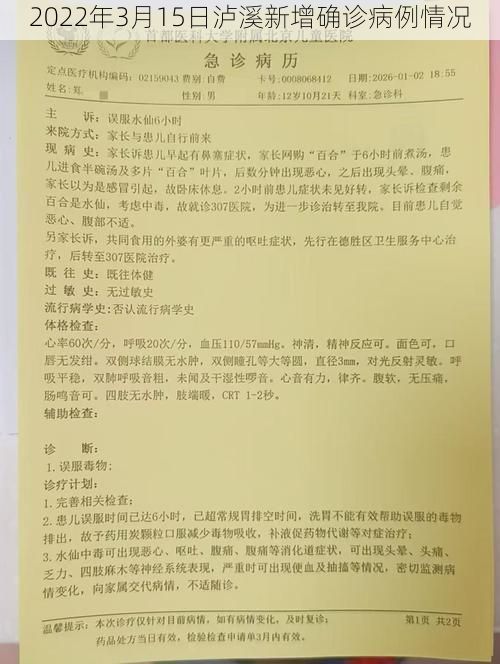 2022年3月15日泸溪新增确诊病例情况
首都医科大学附属北京儿童医院
急诊病历
定点医疗机构编码：02159043 费别：自费 卡号：0008068412 日期：2026-01-02 18:55
姓名：郑 性别：男 年龄：12岁10月21天 科室：急诊科
主 诉：误服水仙6小时
来院方式：家长与患儿自行前来
现 病 史：家长诉患儿早起有鼻塞症状，家长网购“百合”于6小时前煮汤，患
儿进食半碗汤及多片“百合”叶片，后数分钟出现恶心，之后出现头晕、腹痛，
家长以为是感冒引起，故卧床休息。2小时前患儿症状未见好转，家长诉检查剩余
百合是水仙，考虑中毒，故就诊307医院，为进一步诊治转至我院。目前患儿自觉
恶心、腹部不适。
另家长诉，共同食用的外婆有更严重的呕吐症状，先行在德胜区卫生服务中心治
疗，后转至307医院治疗。
既 往 史：既往体健
过 敏 史：无过敏史
流行病学史：否认流行病学史
体格检查：
心率60次/分，呼吸20次/分，血压110/57mmHg。神清，精神反应可。面色可。口
唇无发绀。双侧球结膜无水肿，双侧瞳孔等大等圆，直径3mm，对光反射灵敏。呼
吸平稳，双肺呼吸音粗，未闻及干湿性啰音。心音有力，律齐。腹软，无压痛，
肠鸣音可。四肢无水肿，肢端暖，CRT 1-2秒。
辅助检查：
诊 断：
1.误服毒物；
诊疗计划：
1.完善相关检查；
2.患儿误服时间已达6小时，已超常规胃排空时间，洗胃不能有效帮助误服的毒物
排出，故予药用炭颗粒口服减少毒物吸收，补液促药物代谢等对症治疗；
3.水仙中毒可出现恶心、呕吐、腹痛、腹痛等消化道症状，可出现头晕、头痛、
乏力、四肢麻木等神经系统表现，严重时可出现便血及抽搐等情况，密切监测病
情变化，向家属交代病情，不适随诊。
温馨提示：本次诊疗仅针对目前病情，如有病情变化，及时复诊； 第1页 共2页
药品处方当日有效，检验检查申请单3月内有效。